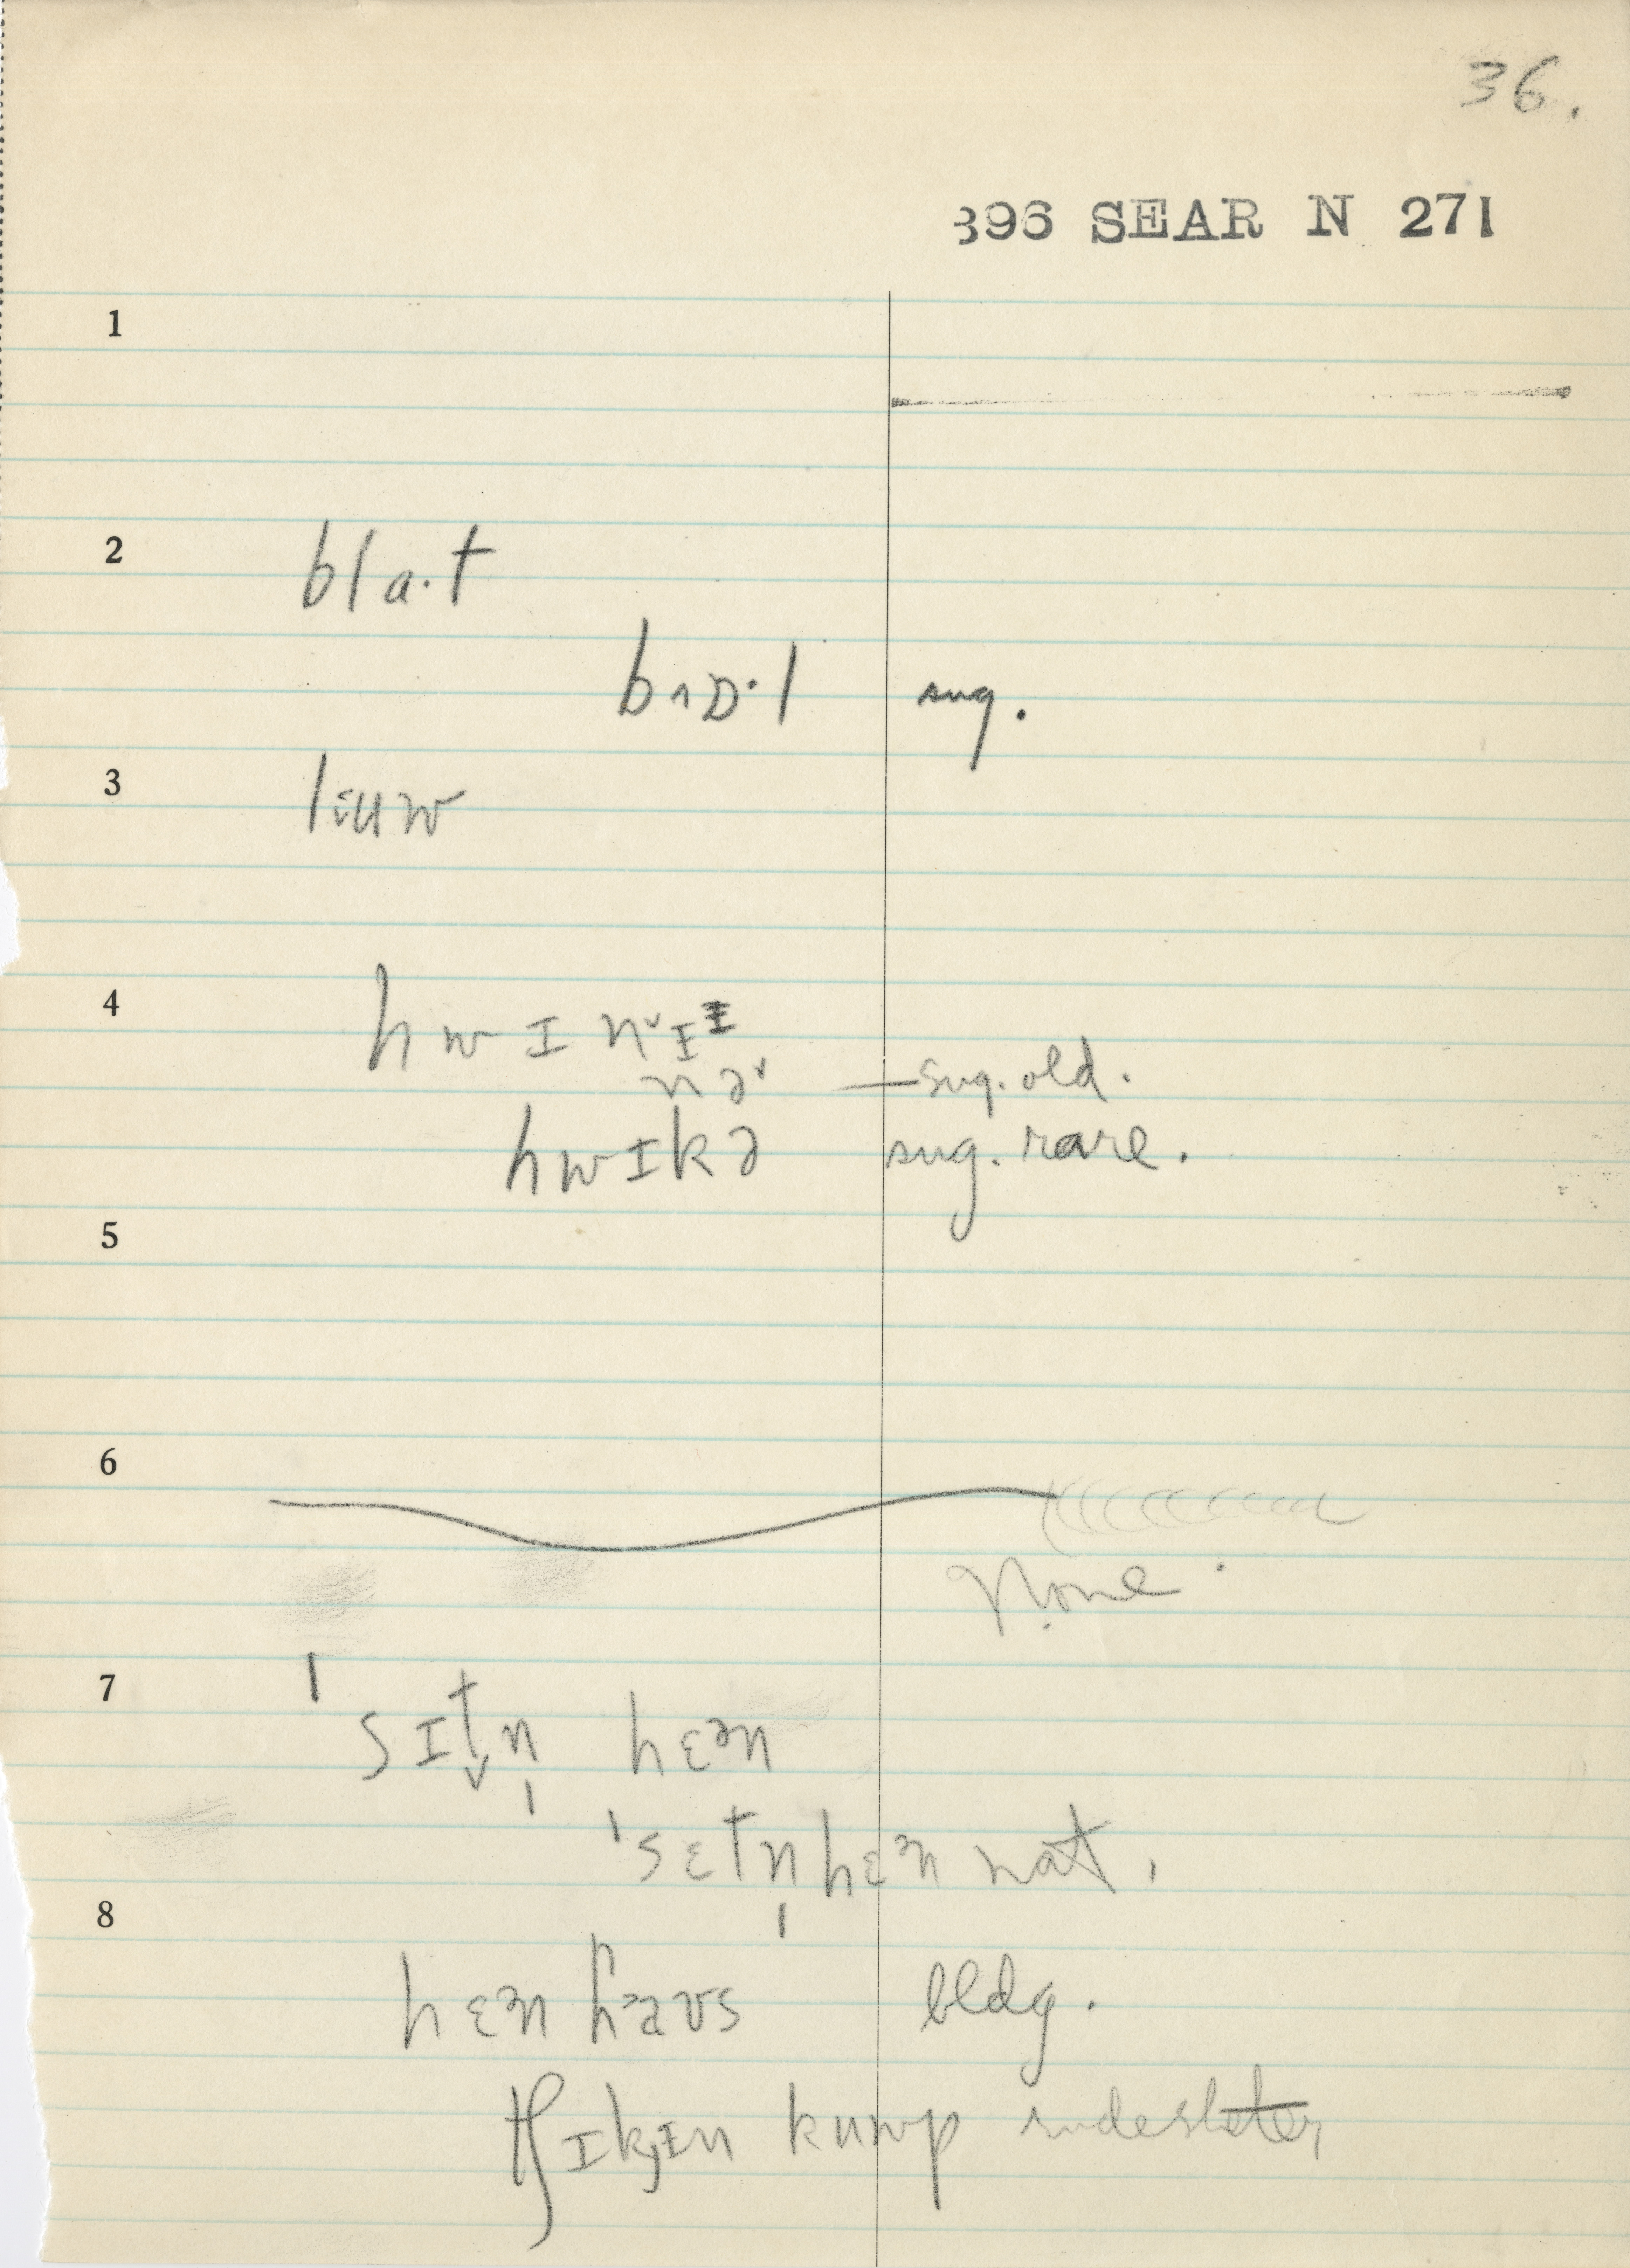 36.
396 SEAR N 271
1
2 bla·t
bɒ·l sug.
3 liuw
4 hwɪnˇɪᵻ
nəˇ — sug. old.
hwɪkə sug. rare.
5
6
None.
7 ˈsɪt̬n̩ hɛən
ˈsɛtn̩hɛən nat.
8 hɛən haʊs bldg.
tʃɪkɪn kuwp